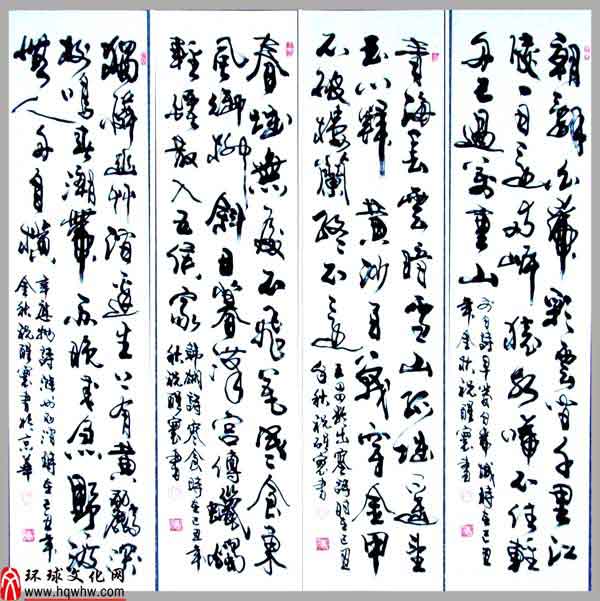 朝辭白帝彩雲間千里江
陵一日還兩岸猿聲啼不住輕
舟已過萬重山
李白詩早發白帝城時在己丑
年金秋祝醒雲書
青海長雲暗雪山孤城遙望
玉門關黃沙百戰穿金甲
不破樓蘭終不還
秋祝醒雲書
春城無處不飛花寒食東
風御柳斜日暮漢宮傳蠟燭
輕煙散入五侯家
韓翃詩寒食時在己丑年
秋祝醒雲書
獨憐幽草澗邊生上有黃鸝深
樹鳴春潮帶雨晚來急野渡
無人舟自橫
韋應物詩滁州西澗時在己丑年
金秋祝醒雲書於京華
环球文化网
www.hqwhw.com